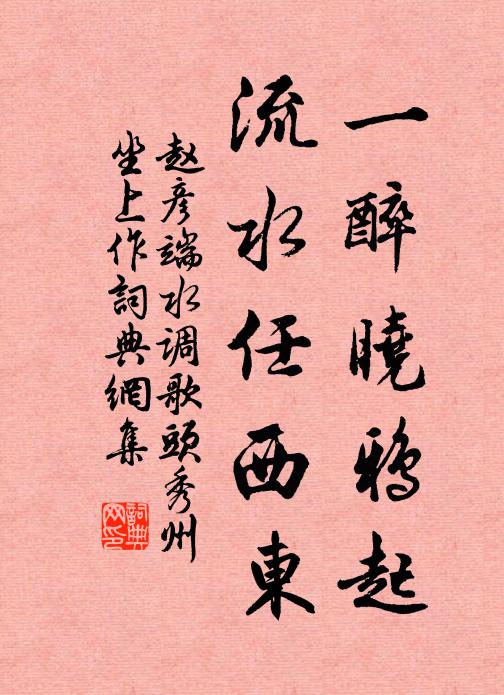 一醉曉鴉起
流水任西東
赵彦端水调歌頭秀州
坐上作詞典網集
詞典網印